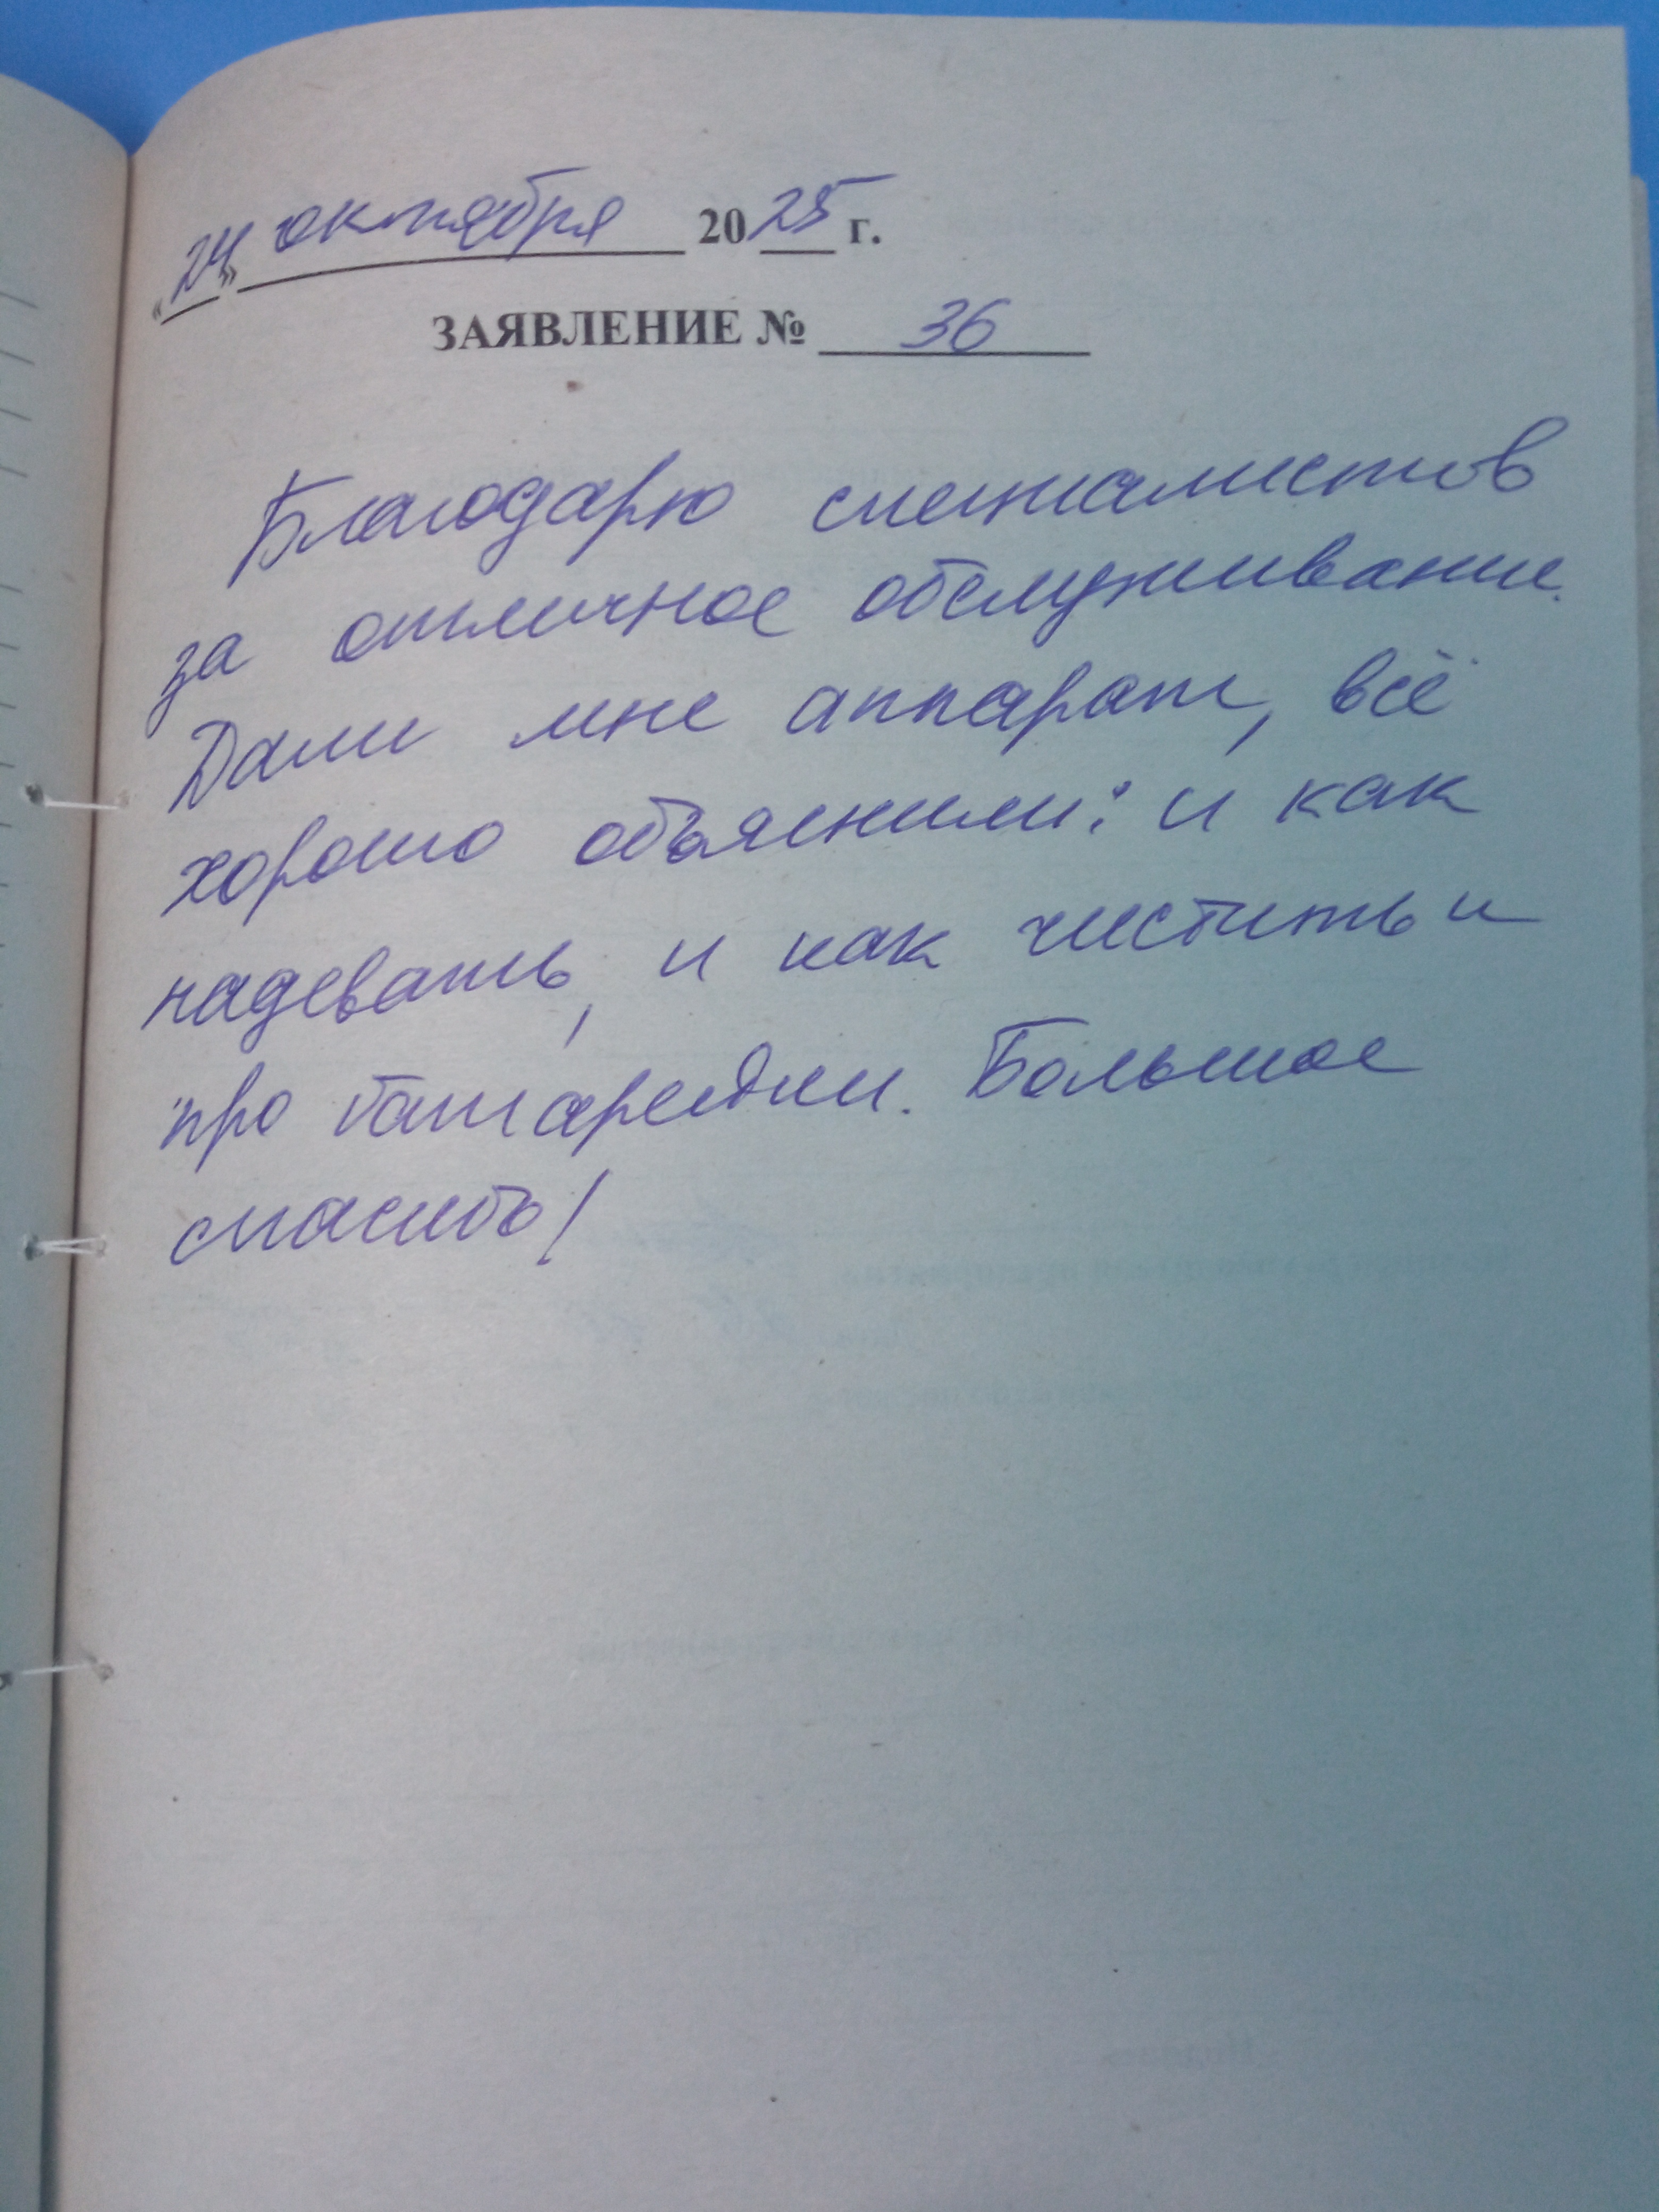 «24» октября 2025 г.
ЗАЯВЛЕНИЕ № 36
Благодарю специалистов
за отличное обслуживание.
Дали мне аппарат, всё
хорошо объяснили: и как
надевать, и как чистить и
про батарейки. Большое
спасибо!